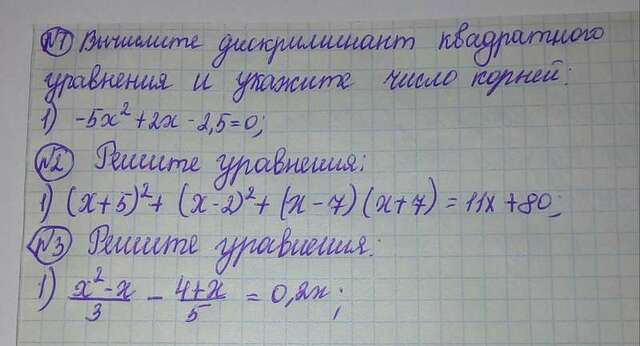 №1 Вычислите дискриминант квадратного
уравнения и укажите число корней:
1) -5x² + 2x - 2,5 = 0;
№2 Решите уравнения:
1) (x+5)² + (x-2)² + (x-7)(x+7) = 11x + 80;
№3 Решите уравнения:
1) \frac{x² - x}{3} - \frac{4+x}{5} = 0,2x;